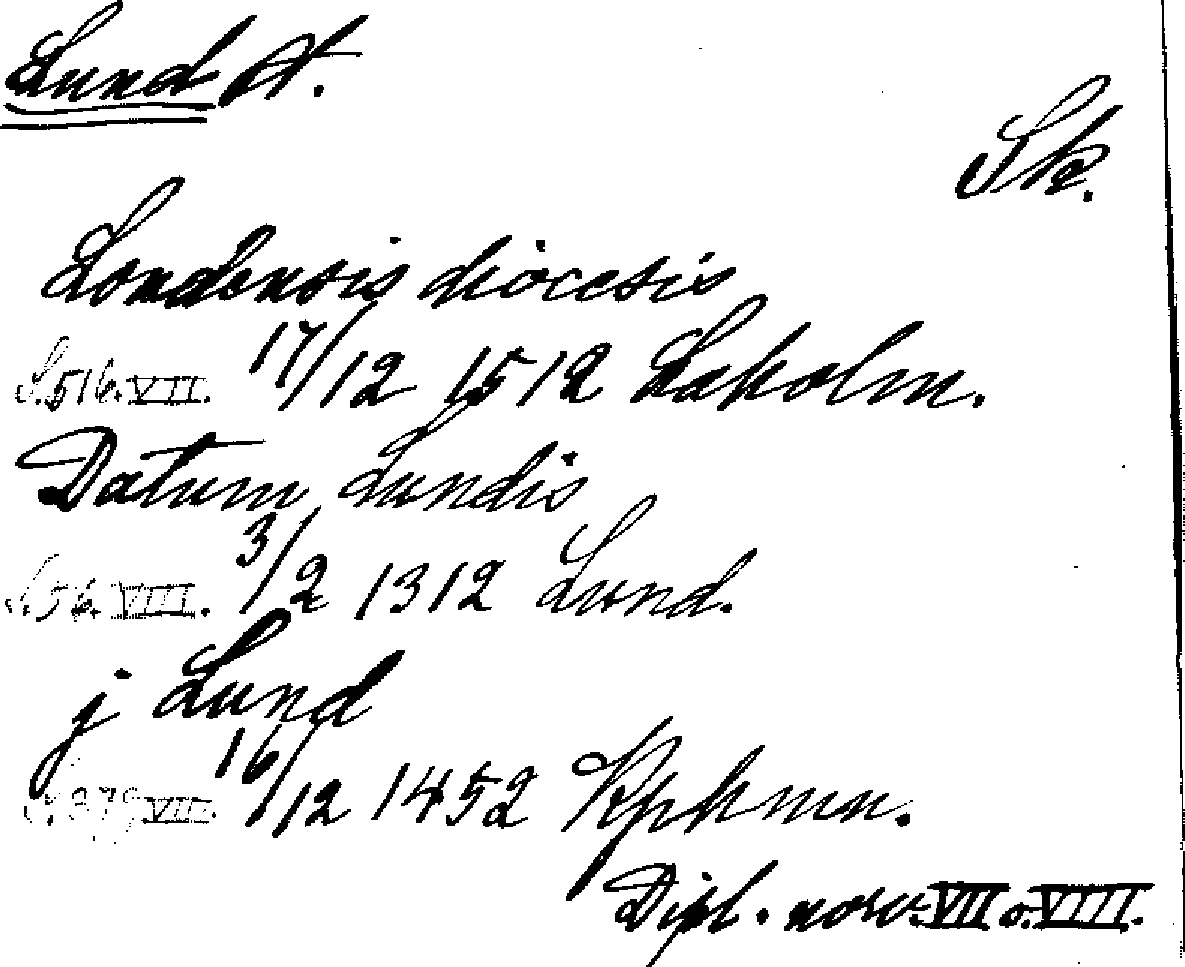 Lund St.
Sk.
Londensis diocesis
S. 516. VII. 17/12 1512 Laholm.
Datum Lundis
S. 56. VIII. 3/2 1312 Lund.
j Lund
S. 379 VII. 16/12 1452 Kphmn.
Dipl. norv. VII o. VIII.